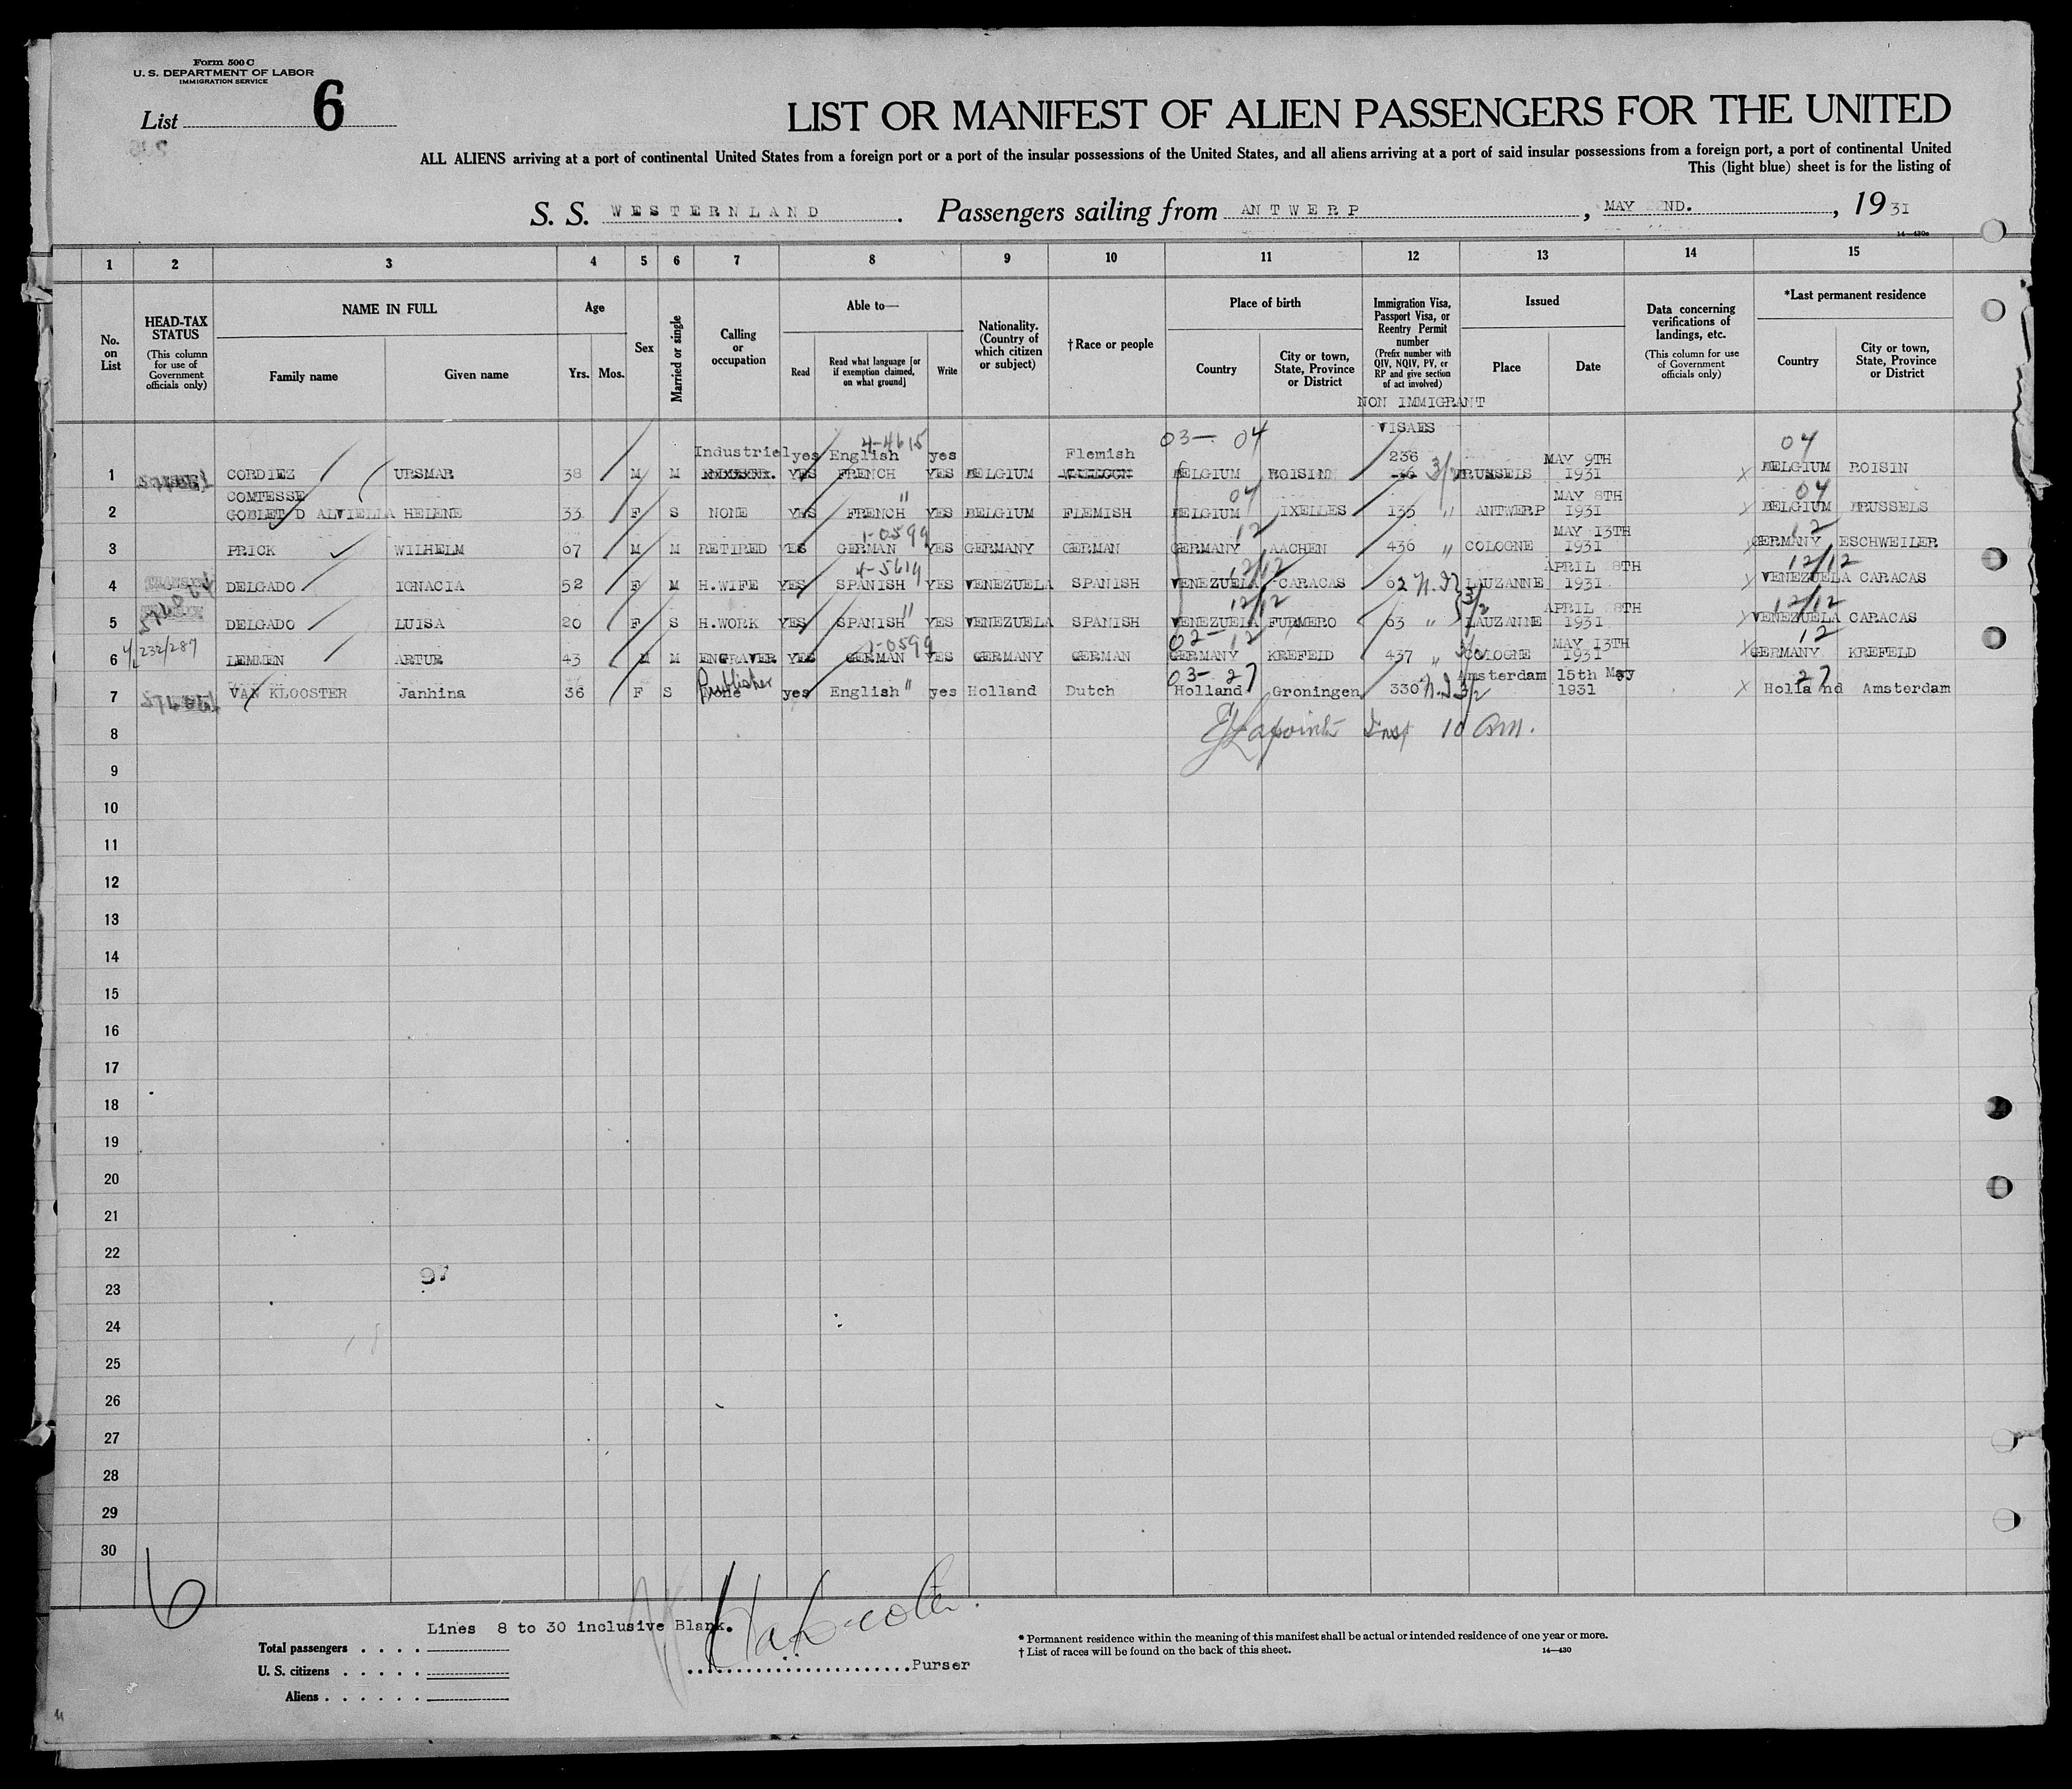 Form 500 C
U. S. DEPARTMENT OF LABOR
IMMIGRATION SERVICE
List 6
LIST OR MANIFEST OF ALIEN PASSENGERS FOR THE UNITED
ALL ALIENS arriving at a port of continental United States from a foreign port or a port of the insular possessions of the United States, and all aliens arriving at a port of said insular possessions from a foreign port, a port of continental United
This (light blue) sheet is for the listing of
S. S. WESTERNLAND. Passengers sailing from ANTWERP, MAY 22ND., 1931
14—430c
1 2 3 4 5 6 7 8 9 10 11 12 13 14 15
No. on List
HEAD-TAX STATUS
(This column for use of Government officials only)
NAME IN FULL
Family name Given name
Age
Yrs. Mos.
Sex
Married or single
Calling or occupation
Able to—
Read
Read what language [or if exemption claimed, on what ground]
Write
Nationality. (Country of which citizen or subject)
†Race or people
Place of birth
Country
City or town, State, Province or District
Immigration Visa, Passport Visa, or Reentry Permit number
(Prefix number with QIV, NQIV, PV, or RP and give section of act involved)
Issued
Place Date
Data concerning verifications of landings, etc.
(This column for use of Government officials only)
*Last permanent residence
Country
City or town, State, Province or District
NON IMMIGRANT
VISAES
4-4615 03- 04 04
Industriel yes English yes Flemish 236 MAY 9TH
1 CORDIEZ URSMAR 38 M M YES FRENCH YES BELGIUM BELGIUM ROISIN 3/2 BRUSSELS 1931 BELGIUM ROISIN
COMTESSE " 04 MAY 8TH 04
2 GOBLET D ALVIELLA HELENE 33 F S NONE YES FRENCH YES BELGIUM FLEMISH BELGIUM IXELLES 135 " ANTWERP 1931 BELGIUM BRUSSELS
1-0599 12 MAY 13TH 12
3 PRICK WILHELM 67 M M RETIRED YES GERMAN YES GERMANY GERMAN GERMANY AACHEN 436 " COLOGNE 1931 GERMANY ESCHWEILER
4-5619 12/12 APRIL 28TH 12/12
4 DELGADO IGNACIA 52 F M H.WIFE YES SPANISH YES VENEZUELA SPANISH VENEZUELA CARACAS 62 LAUZANNE 1931 VENEZUELA CARACAS
" 12/12 3/2 APRIL 28TH 12/12
5 DELGADO LUISA 20 F S H.WORK YES SPANISH YES VENEZUELA SPANISH VENEZUELA FURMERO 63 " LAUZANNE 1931 VENEZUELA CARACAS
232/287 1-0599 02- 12 MAY 13TH 12
6 LEMMEN ARTUR 43 M M ENGRAVER YES GERMAN YES GERMANY GERMAN GERMANY KREFELD 437 " COLOGNE 1931 GERMANY KREFELD
Publisher 03- 27 Amsterdam 15th May 27
7 VAN KLOOSTER Janhina 36 F S yes English " yes Holland Dutch Holland Groningen 330 3/2 1931 Holland Amsterdam
8
Lapointe Insp 10 am.
9
10
11
12
13
14
15
16
17
18
19
20
21
22
23
97
24
25
26
27
28
29
30
6
Lines 8 to 30 inclusive Blank.
Total passengers . . . .
U. S. citizens . . . . .
Aliens . . . . . .
Purser
* Permanent residence within the meaning of this manifest shall be actual or intended residence of one year or more.
† List of races will be found on the back of this sheet.
14—430